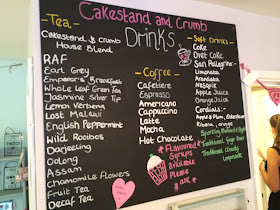 Cakestand and Crumb
DRINKS
- Tea -
Cakestand & Crumb
House Blend
RAF
Earl Grey
Emperor's Breakfast
Whole Leaf Green Tea
Jasmine Silver Tip
Lemon Verbena
Lost Malawi
English Peppermint
Wild Rooibos
Darjeeling
Oolong
Assam
Chamomile Flowers
Fruit Tea
Decaf Tea
- Coffee -
Cafetiere
Espresso
Americano
Cappuccino
Latte
Mocha
Hot Chocolate
*Flavoured
Syrups
Available
Please
ask *
- Soft Drinks -
Coke
Diet Coke
San Pellegrino -
Limonata
Aranciata
Apple Juice
Orange Juice
Cordials -
Apple & Plum, Elderflower
Traditional Ginger Beer
Traditional Cloudy
Lemonade